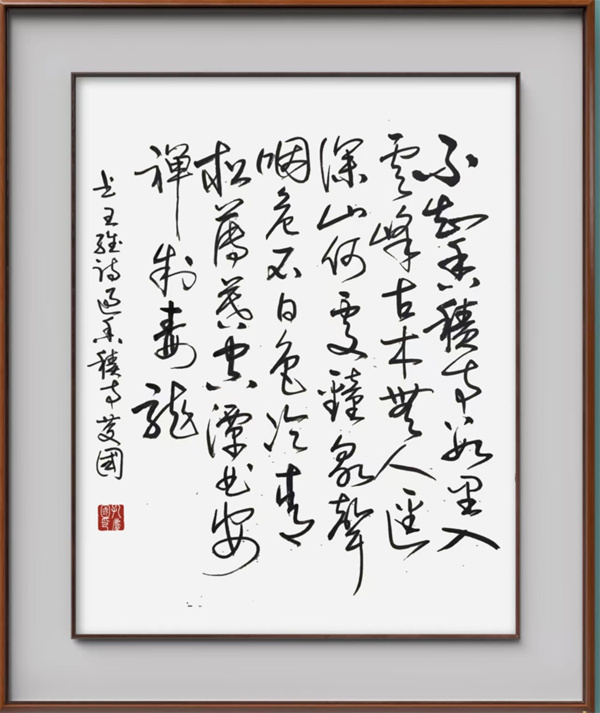 不知香積寺數里入
雲峰古木無人逕
深山何處鐘泉聲
咽危石日色冷青
松薄暮空潭曲安
禪制毒龍
书王維詩過香積寺國